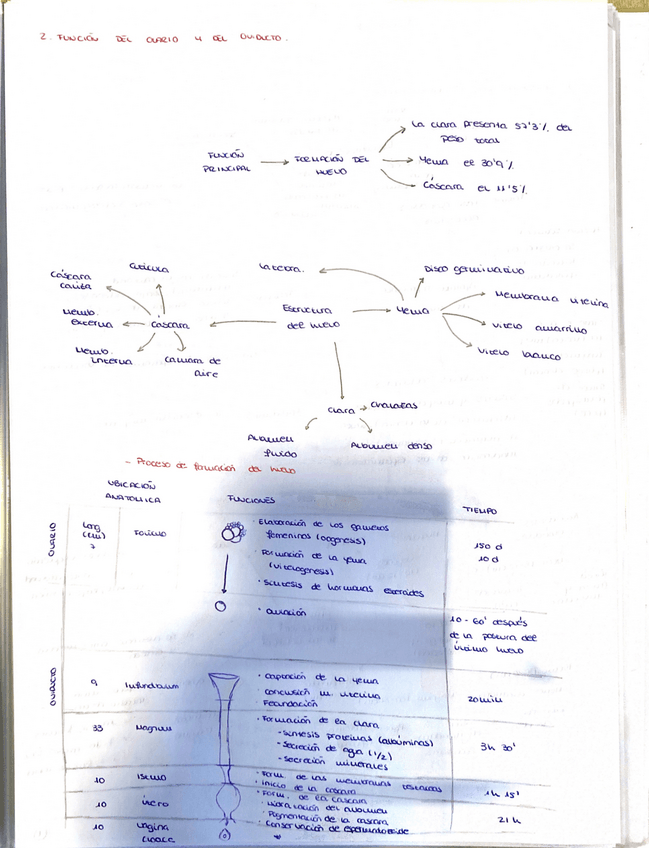 2. FUNCIÓN DEL OVARIO Y DEL OVIDUCTO.
FUNCIÓN
PRINCIPAL
FORMACIÓN DEL
HUEVO
La clara presenta 57'3% del
peso total
Yema el 30'9%
Cáscara el 11'5%
Estructura
del huevo
Latebra.
Yema
Disco germinativo
Membrana vitelina
Vitelo amarillo
Vitelo blanco
Cáscara
Cutícula
Cáscara
caliza
Memb.
externa
Memb.
interna
Cámara de
aire
Clara
Chalazas
Albumen
fluido
Albumen denso
- Proceso de formación del huevo
UBICACIÓN
ANATOMICA
FUNCIONES
TIEMPO
OVARIO
Long
(cm)
7
Folículo
· Elaboración de los gametos
femeninos (oogenesis)
· Formación de la yema
(vitelogenesis)
· Síntesis de hormonas esteroides
150 d
10 d
· Ovulación
10 - 60' después
de la postura del
último huevo
OVIDUCTO
9
Infundibulum
· Captación de la yema
· Fecundación
20 min
33
Magnum
· Formación de la clara
- Síntesis proteínas (albúminas)
- Secreción de agua (1/2)
- Secreción minerales
3h 30'
10
Istmo
· Form. de las membranas testáceas
· Inicio de la cáscara
1h 15'
10
Útero
· Form. de la cáscara
· Hidratación del albumen
· Pigmentación de la cáscara
21 h
10
Vagina
Cloaca
· Conservación de espermatozoide